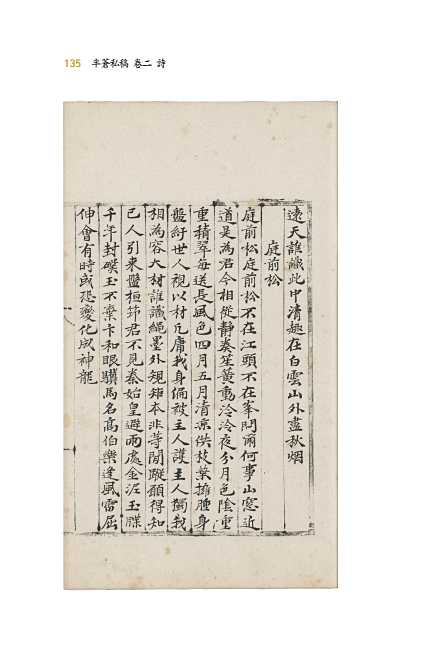 135 半蒼私稿 卷二 詩
遠天誰識此中淸趣在白雲山外盡秋烟
庭前松
庭前松庭前松不在江頭不在峯問爾何事山窓近
道是為君今相從靜奏笙簧動泠泠夜分月色陰重
重積翠每送長風色四月五月清凉供枝葉擁腫身
盤紆世人視以材凡庸我身偏被主人護主人獨我
相為容大材誰識繩墨外規矩本非等閒蹤願得知
己人引來盤桓節君不見秦始皇避雨處金泥玉牒
千年封礫玉不棄卞和眼驥馬名高伯樂逢風雷屈
伸會有時或恐變化成神龍